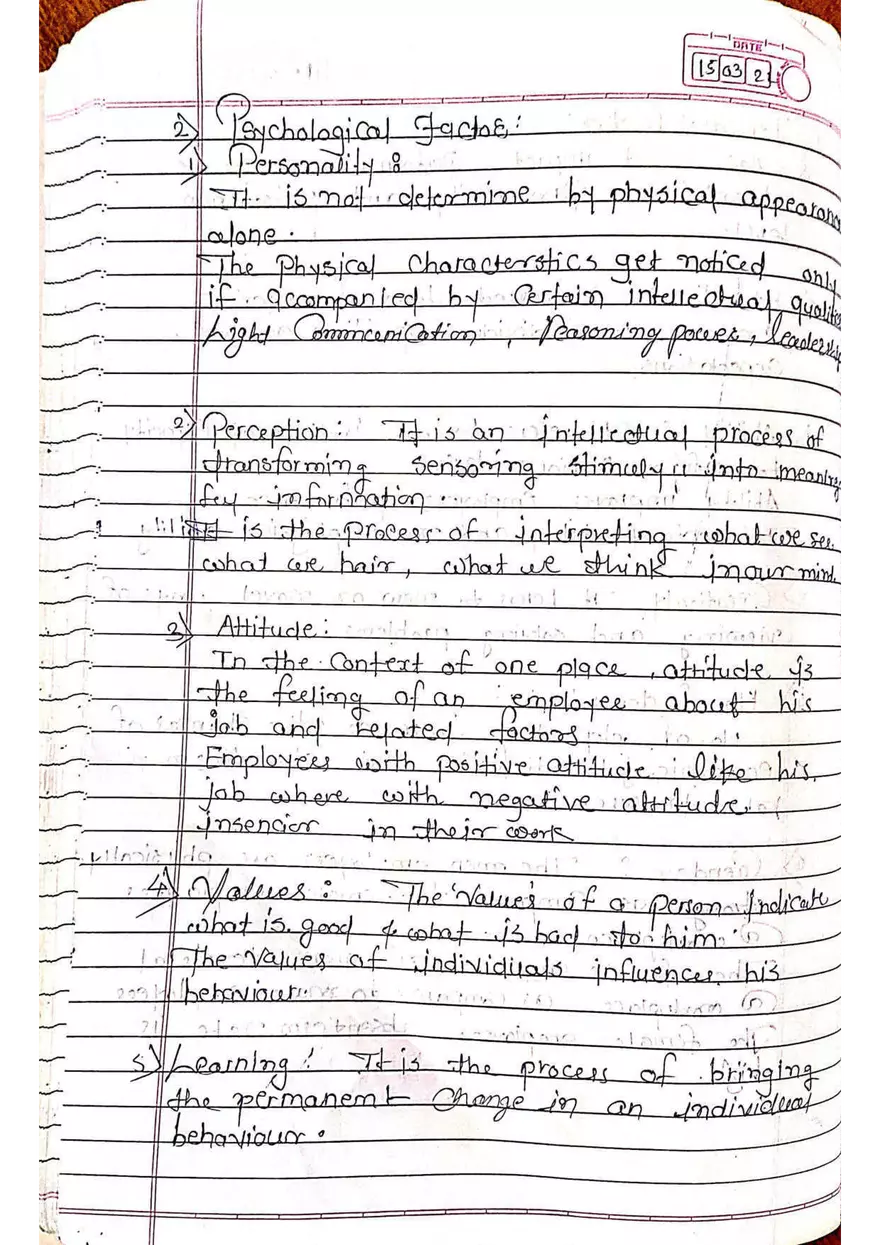 DATE
15 03 21
2) Psychological Factor:
1) Personality:
It is not determine by physical appearanc
alone.
The Physical Characterstics get noticed only
if accompanied by Certain intellectual qualities
Light Communication, Reasoning power, leadership
2) Perception: It is an intellectual process of
transforming sensoring stimuly into meaning
ful information.
It is the process of interpreting what we see.
what we hair, what we think in our mind.
3) Attitude:
In the Context of one place, attitude is
the feeling of an employee about his
job and related factors
Employees with positive attitude like his
job where with negative attitude
in their work
4) Values: The values of a person Indicate
what is good & what is bad to him.
The values of individuals influences his
behaviour.
5) Learning: It is the process of bringing
the permanent Change in an individual
behaviour.